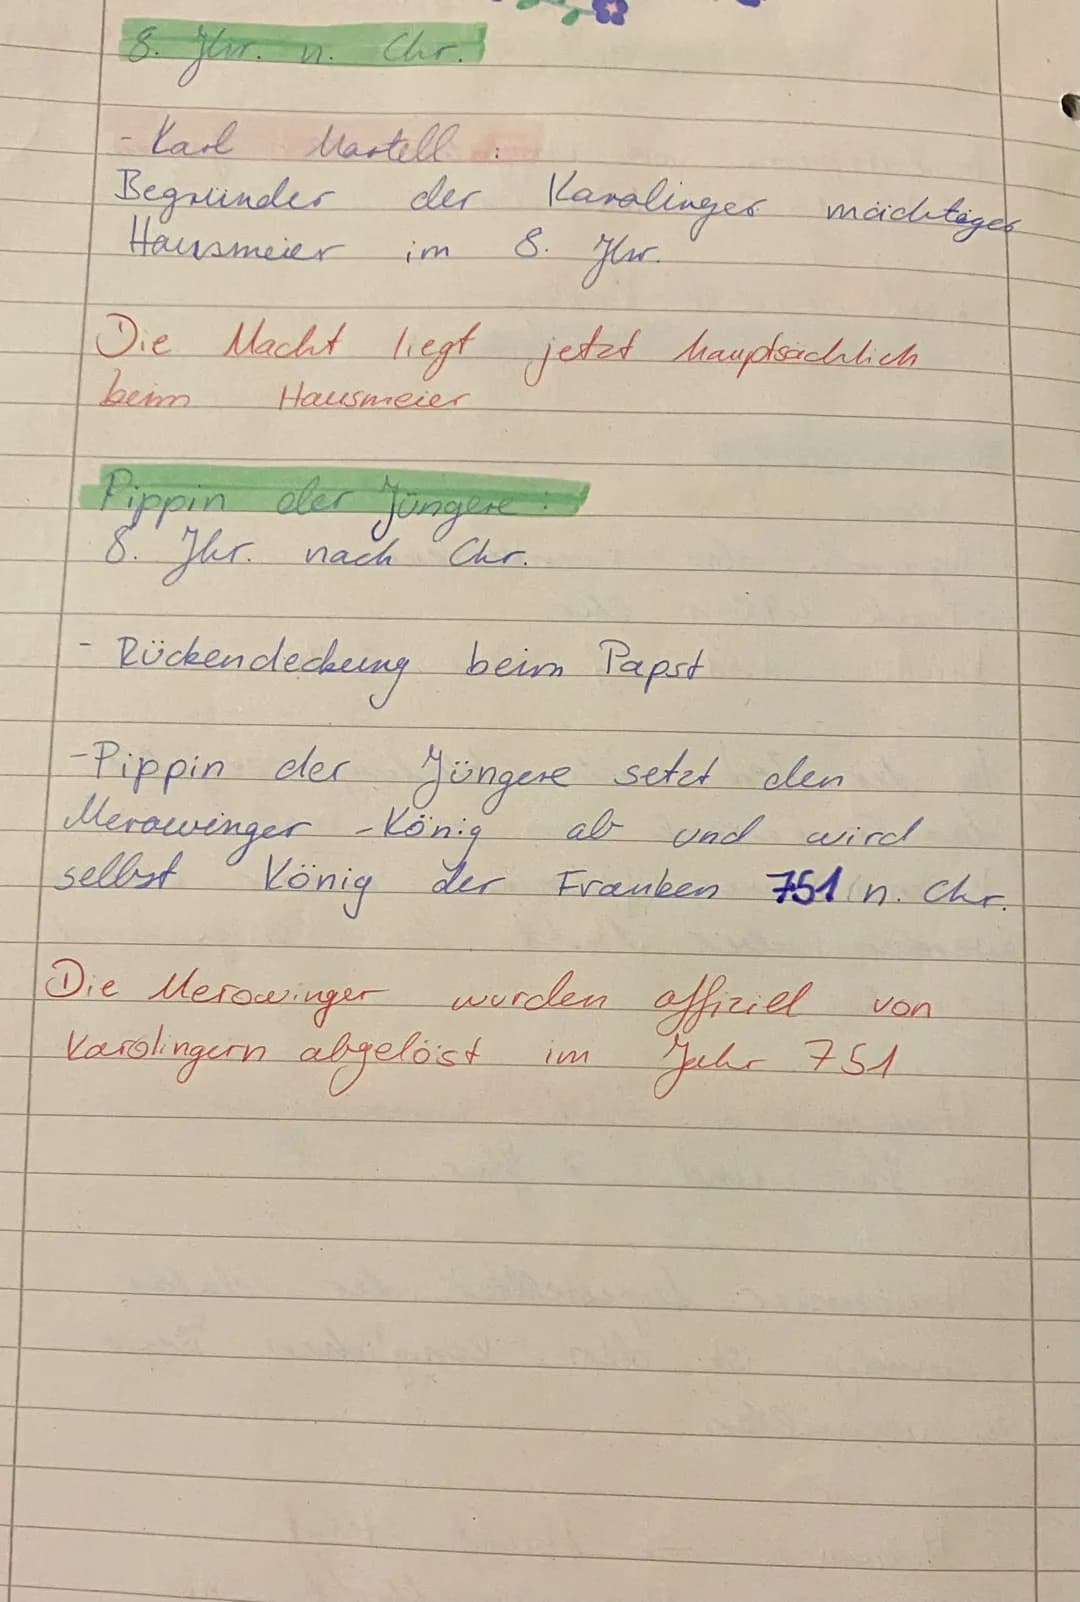 8. Jhr. n. Chr.
- Karl Martell :
Begründer der Karolinger mächtiger
Hausmeier im 8. Jhr.
Die Macht liegt jetzt hauptsächlich
beim Hausmeier
Pippin der Jüngere :
8. Jhr. nach Chr.
- Rückendeckung beim Papst
- Pippin der Jüngere setzt den
Merowinger - König ab und wird
selbst König der Franken 751 n. Chr.
Die Merowinger wurden offiziell von
Karolingern abgelöst im Jahr 751